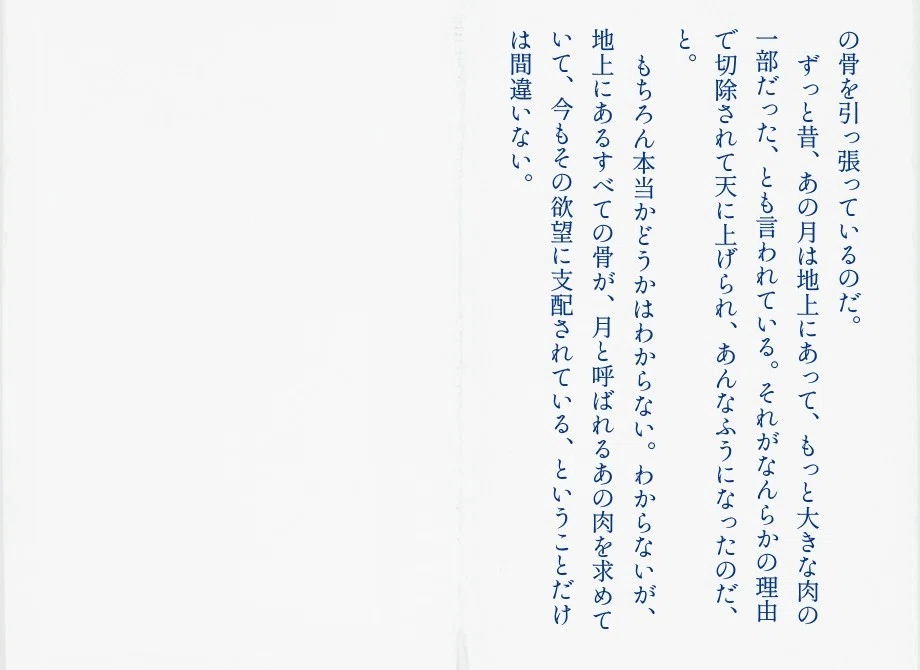 の骨を引っ張っているのだ。
ずっと昔、あの月は地上にあって、もっと大きな肉の
一部だった、とも言われている。それがなんらかの理由
で切除されて天に上げられ、あんなふうになったのだ、
と。
もちろん本当かどうかはわからない。わからないが、
地上にあるすべての骨が、月と呼ばれるあの肉を求めて
いて、今もその欲望に支配されている、ということだけ
は間違いない。